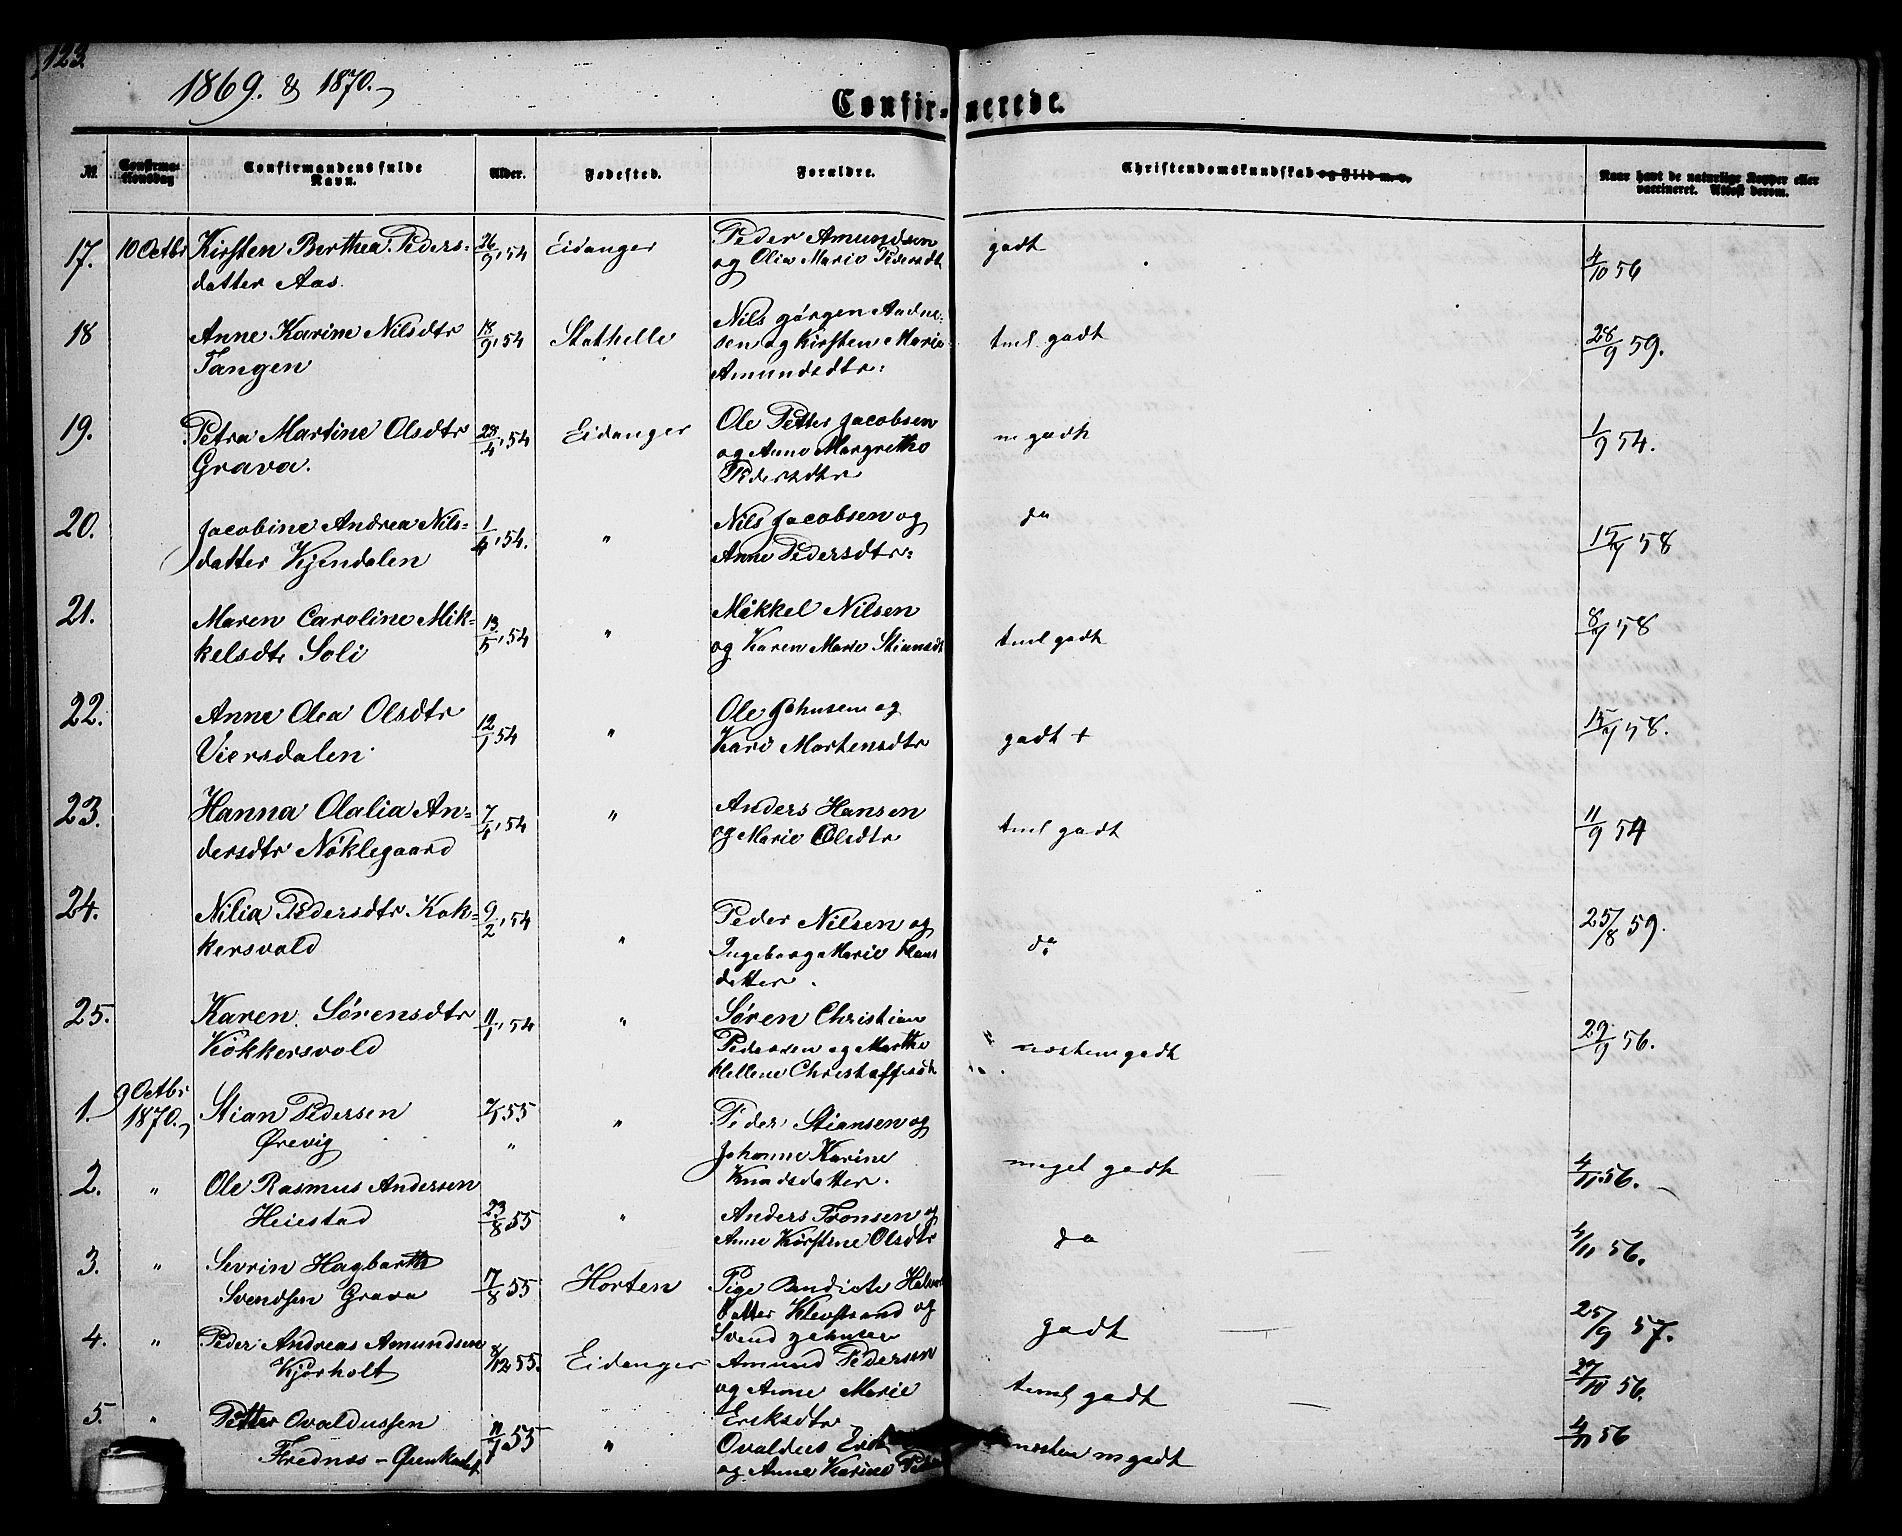 123
1869. & 1870.
Confirmerede.
№ Confirmationsdag Confirmandens fulde Navn. Alder. Fødested. Forældre. Christendomskundskab og Flid m. v. Naar havt de naturlige Kopper eller vaccineret. Attest derom.
17. 10 Octbr Kirsten Berthea Peders- 26/9, 54 Eidanger Peder Amundsen godt 4/10 56
datter Aas. og Olia Marie Pedersdt
18 Anne Karine Nilsdtr 18/9, 54 Stathelle Nils Jørgen Aadne- tml. godt 28/9 59.
Tangen sen og Kirsten Marie
Amundsdtr.
19. Petra Martine Olsdtr 28/4, 54 Eidanger Ole Petter Jacobsen m godt 1/9 54.
Grava. og Anne Margrethe
Pedersdtr
20. Jacobine Andrea Nils- 1/4, 54. " Nils Jacobsen og do 15/9 58
datter Kjendalen Anne Pedersdtr.
21. Maren Caroline Mik- 13/5, 54 " Mikkel Nilsen tml godt 8/9 58
kelsdtr Soli og Karen Marie Stiansdt
22. Anne Olea Olsdtr 12/1, 54 " Ole Johnsen og godt + 15/9 58.
Viersdalen Kari Mortensdtr
23. Hanna Olalia An- 7/4, 54 " Anders Hansen tml godt 11/9 54
dersdtr Nøklegaard og Marie Olsdtr
24. Nilia Pedersdtr Kok- 9/2, 54 " Peder Nilsen og do 25/8 59.
kersvold Ingeborg Marie Hans
datter.
25. Karen Sørensdtr 11/1, 54 " Søren Christian næsten godt 29/9 56.
Kokkersvold Pedersen og Marthe
Hellene Christoffersdt
1. 9 Octbr 1870. Stian Pedersen 55 " Peder Stiansen og meget godt 4/11 56.
Ørevig Johanne Karine
Knudsdatter.
2. " Ole Rasmus Andersen 23/8 55 " Anders Tronsen og do 4/11 56.
Heiestad Anne Kirstine Olsdtr
3. " Sevrin Hagbarth 17/8 55 Horten Pige Bendicte Halvor godt 25/9 57.
Svendsen Grava datter Klevstrand og
Svend Johnsen
4. " Peder Andreas Amundsen 8/12 55. Eidanger Amund Pedersen teml godt 27/10 56.
Kjørholt og Anne Marie
Eriksdtr
5. " Petter Ovaldussen 11/1 55 " Ovaldus Erik næsten m godt 4/11 56
Frednes - og Anne Karine Peder